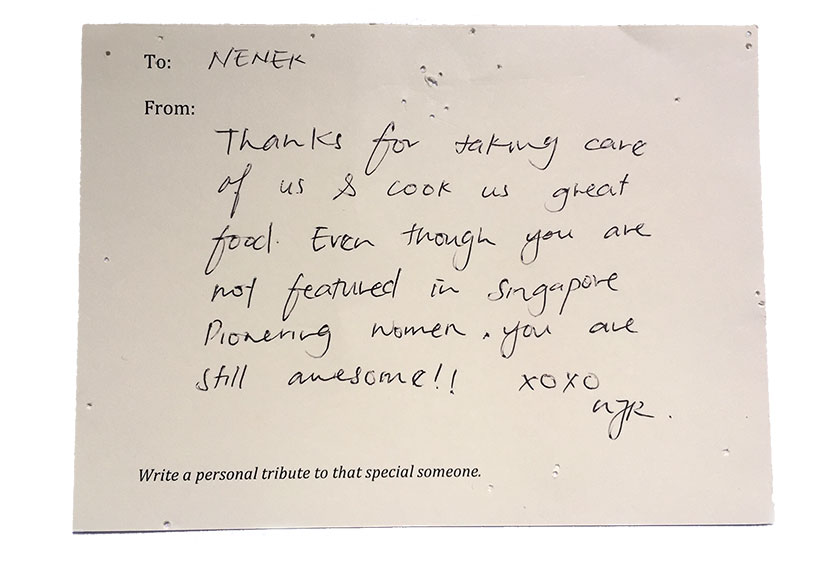 To: NENEK
From:
Thanks for taking care
of us & cook us great
food. Even though you are
not featured in Singapore
Pionering women, you are
still awesome!! XOXO
Write a personal tribute to that special someone.